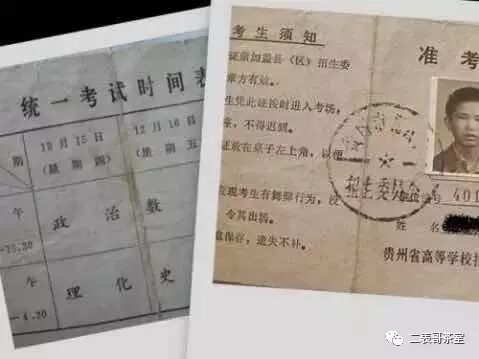 统一考试时间表
期
12月15日
(星期四)
12月16日
(星期五)
午
政治
数
午
理化
史
-4.30
考生须知
证须加盖县(区)招生委
章方有效。
生凭此证按时进入考场,
座,不得迟到。
证放在桌子左上角,以便
发现考生有舞弊行为,应
令其出场。
保存,遗失不补。
准考
招生委员会
401
姓名
贵州省高等学校招
二表哥茶室